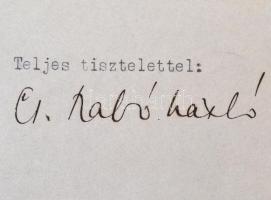 Teljes tisztelettel:
Cs. Szabó László